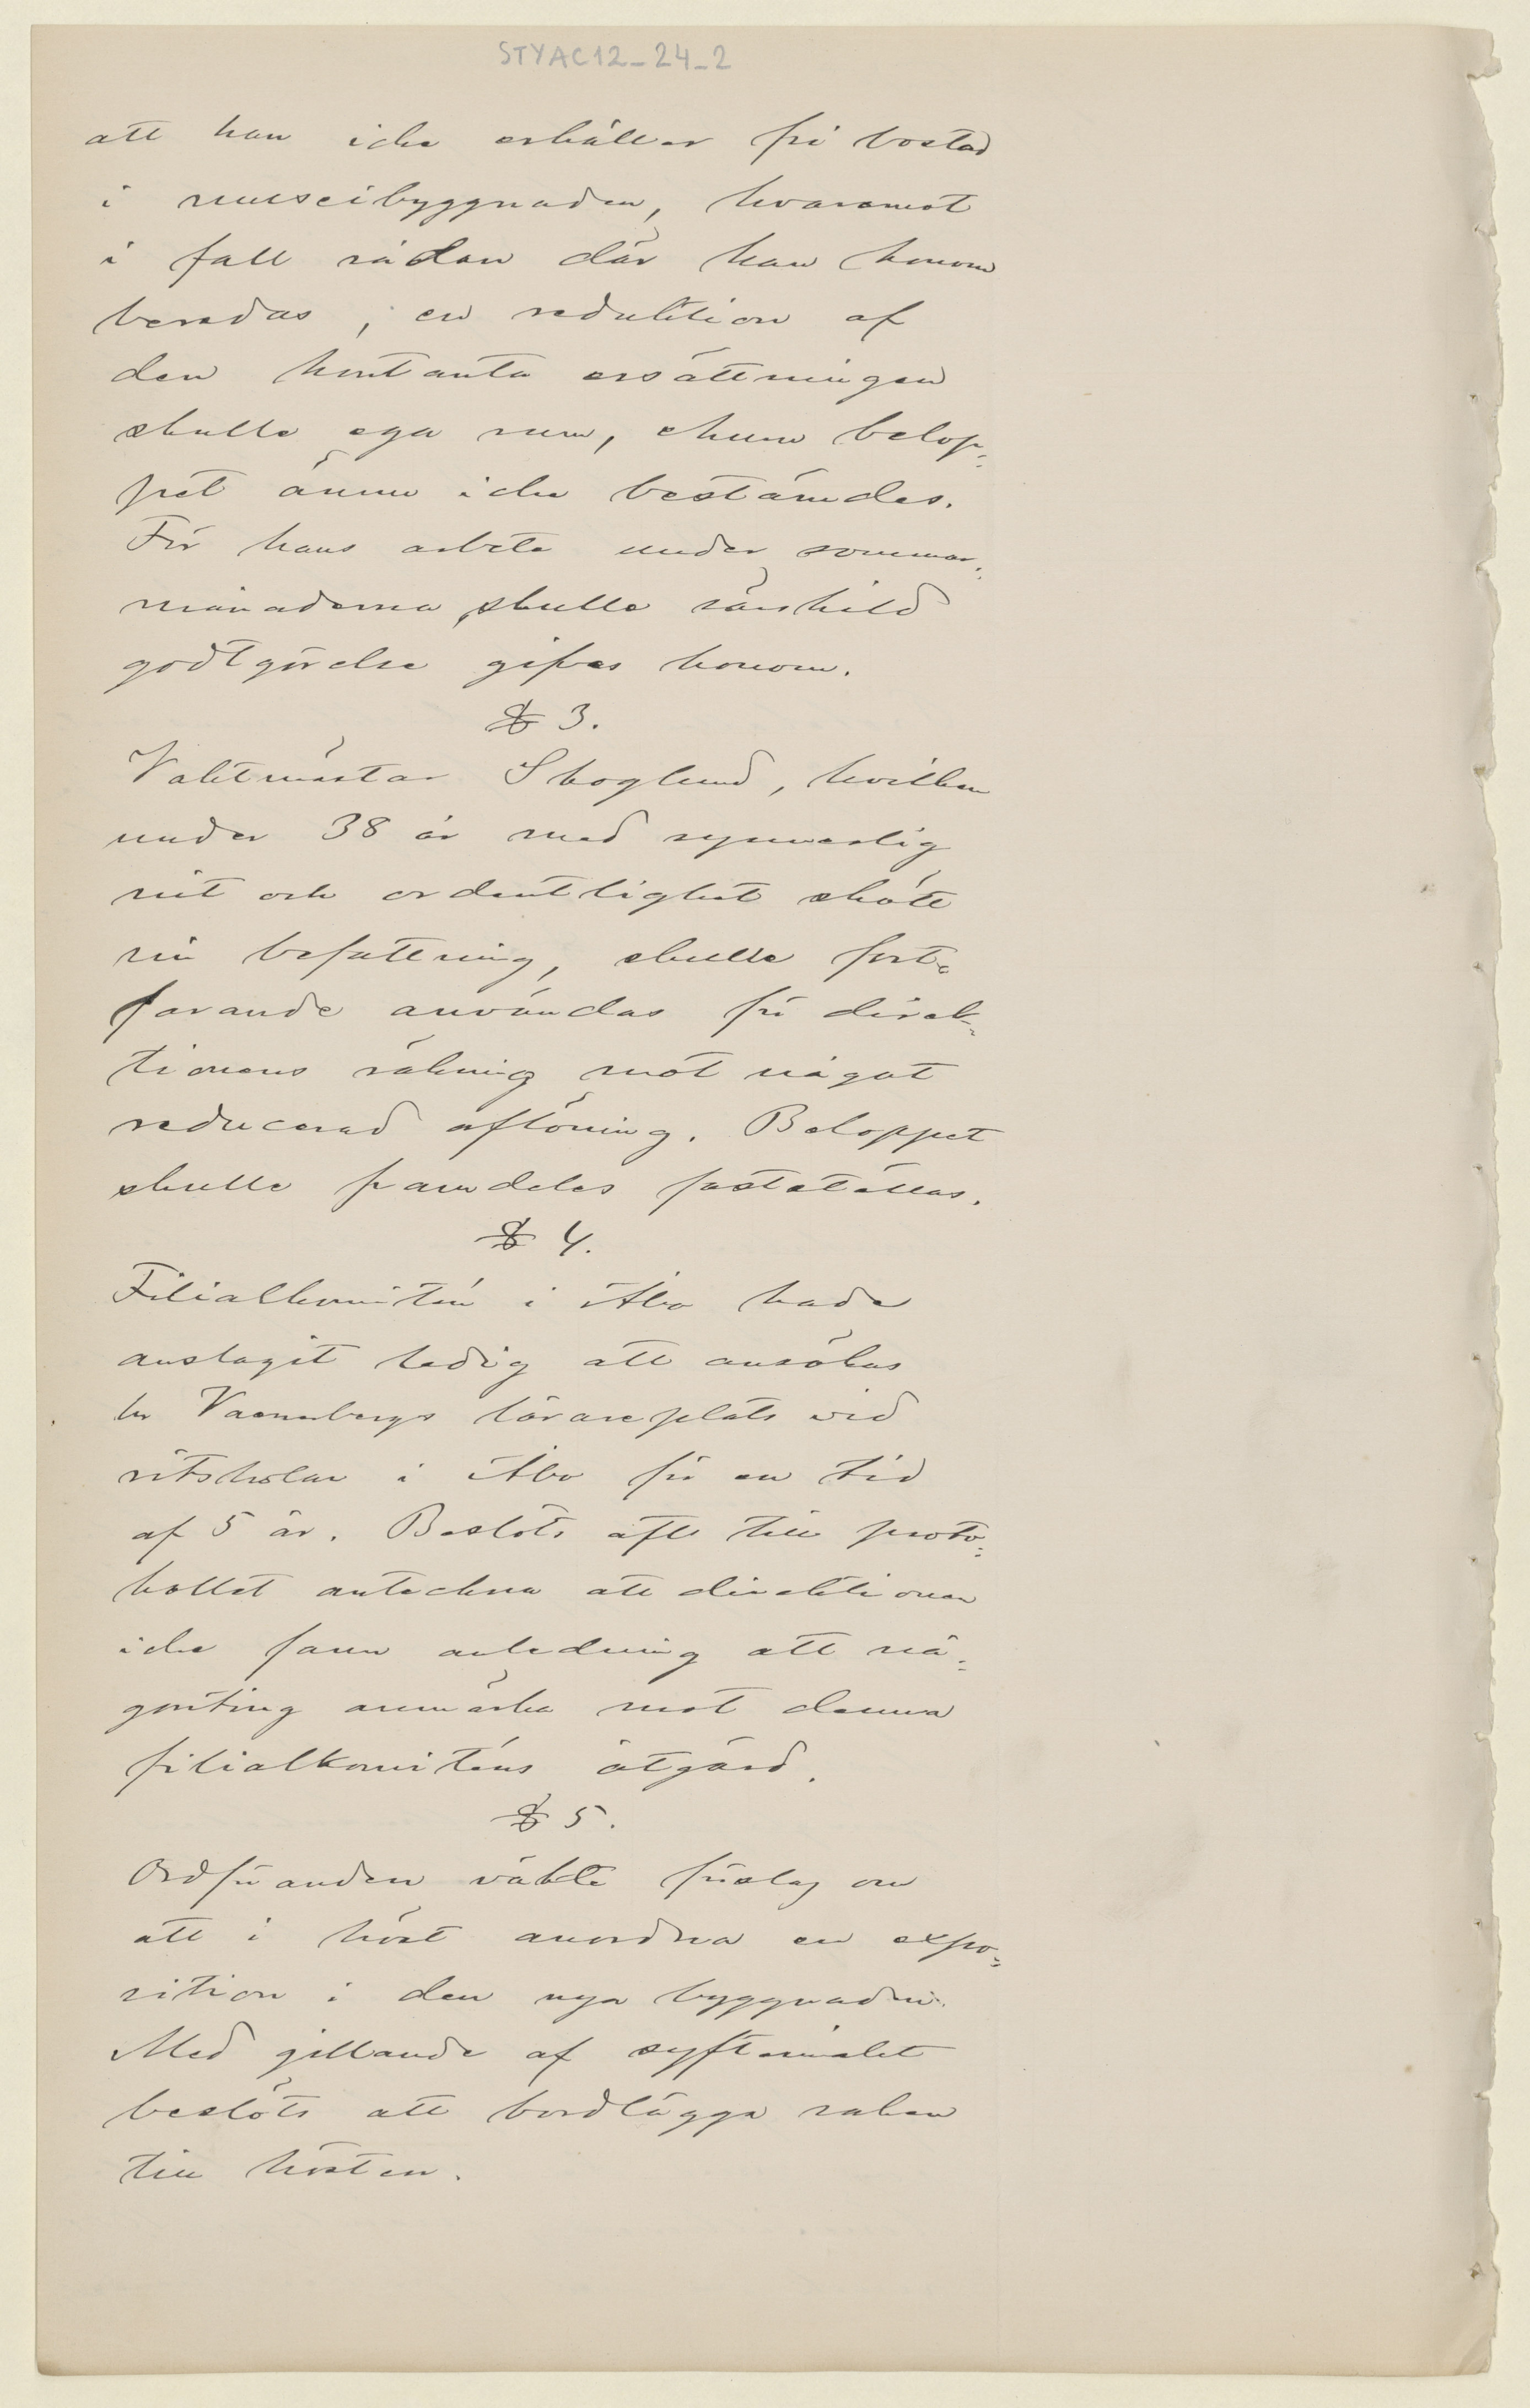 STYAC12_24_2
att han icke erhåller fri bostad
i museibyggnaden, hvaremot
i fall sådan där kan honom
beredas, en reduktion af
den kontanta ersättningen
skulle ega rum, ehuru belop-
pet ännu icke bestämdes.
För hans arbete under sommar-
månaderna skulle särskild
godtgörelse gifvas honom.
§ 3.
Vaktmästar Skoglund, hvilken
under 38 år med synnerlig
nit och ordentlighet skött
sin befattning, skulle fort-
farande användas för direk-
tionens räkning mot något
reducerad aflöning. Beloppet
skulle framdeles fastställas.
§ 4.
Filialkomitén i Åbo hade
anslagit ledig att ansökas
hr Vaennbergs lärareplats vid
ritskolan i Åbo för en tid
af 5 år. Beslöts att till proto-
kollet anteckna att direktionen
icke fann anledning att nå-
gonting anmärka mot denna
filialkomiténs åtgärd.
§ 5.
Ordföranden väkte förslag om
att i höst anordna en expo-
sition i den nya byggnaden.
Med gillande af syftemålet
beslöts att bordlägga saken
till hösten.